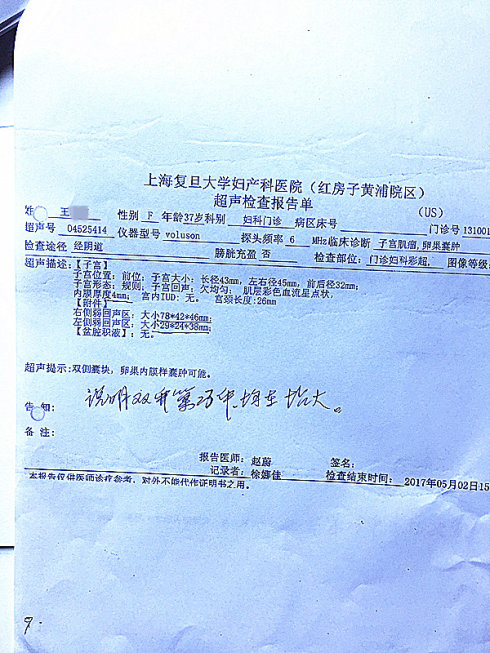 上海复旦大学妇产科医院（红房子黄浦院区）
超声检查报告单
（US）
姓名 王 性别 F 年龄37岁科别 妇科门诊 病区床号 门诊号 131001
超声号 04525414 仪器型号 voluson 探头频率 6 MHz临床诊断 子宫肌瘤,卵巢囊肿
检查途径 经阴道 膀胱充盈 否 检查部位: 门诊妇科彩超. 图像等级:
超声描述:【子宫】
子宫位置: 前位; 子宫大小: 长径43mm, 左右径45mm, 前后径32mm;
子宫形态: 规则; 子宫回声: 欠均匀; 肌层彩色血流星点状,
内膜厚度4mm; 宫内IUD: 无。 宫颈长度:26mm
【附件】
右侧弱回声区: 大小78*42*46mm;
左侧弱回声区: 大小29*24*38mm;
【盆腔积液】: 无。
超声提示:双侧囊块, 卵巢内膜样囊肿可能。
告 知: 说明双卵巢巧囊均在增大。
备 注:
报告医师: 赵蔚 签名:
记录者: 徐娜佳 检查结束时间: 2017年05月02日15
本报告仅供医师诊疗参考, 对外不能代作证明书之用。
9.